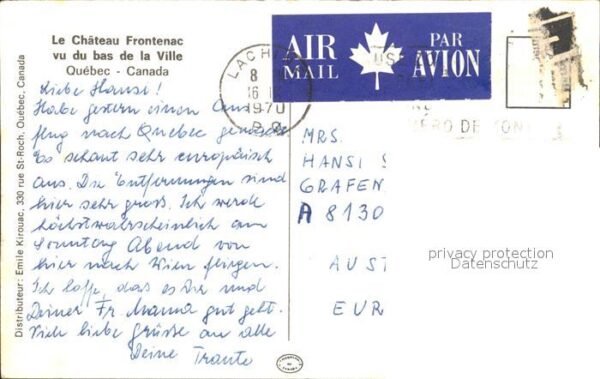 Le Château Frontenac
vu du bas de la Ville
Québec - Canada
Liebe Hansi!
Habe gestern einen Aus
flug nach Quebec gemacht
Es schaut sehr europäisch
aus. Die Entfernungen sind
hier sehr gross. Ich werde
höchstwahrscheinlich am
Sonntag Abend von
hier nach Wien fliegen.
Ich hoffe, das es Dir und
Deiner Fr. Mama gut geht.
Viele liebe Grüsse an alle
Deine Traute
Distributeur: Emile Kirouac, 330 rue St-Roch, Québec, Canada
AIR MAIL
PAR AVION
LACHIN
8
16
1970
P.Q.
MRS.
HANSI
GRAFEN
A 8130
AUST
EUR
privacy protection
Datenschutz